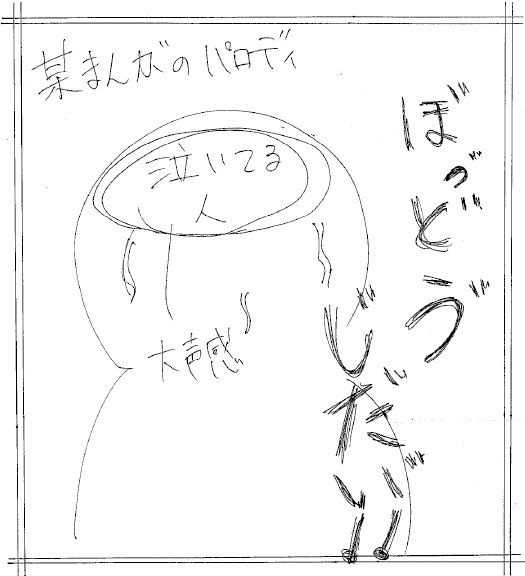 某まんがのパロディ
泣いてる
人
大声感
ぼっ゛どゔ
じだい゛!!